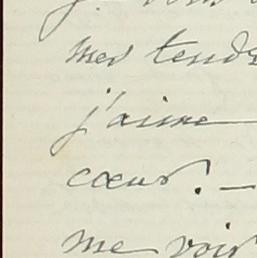 mes tendr
j'aime
cœur. —
me voir